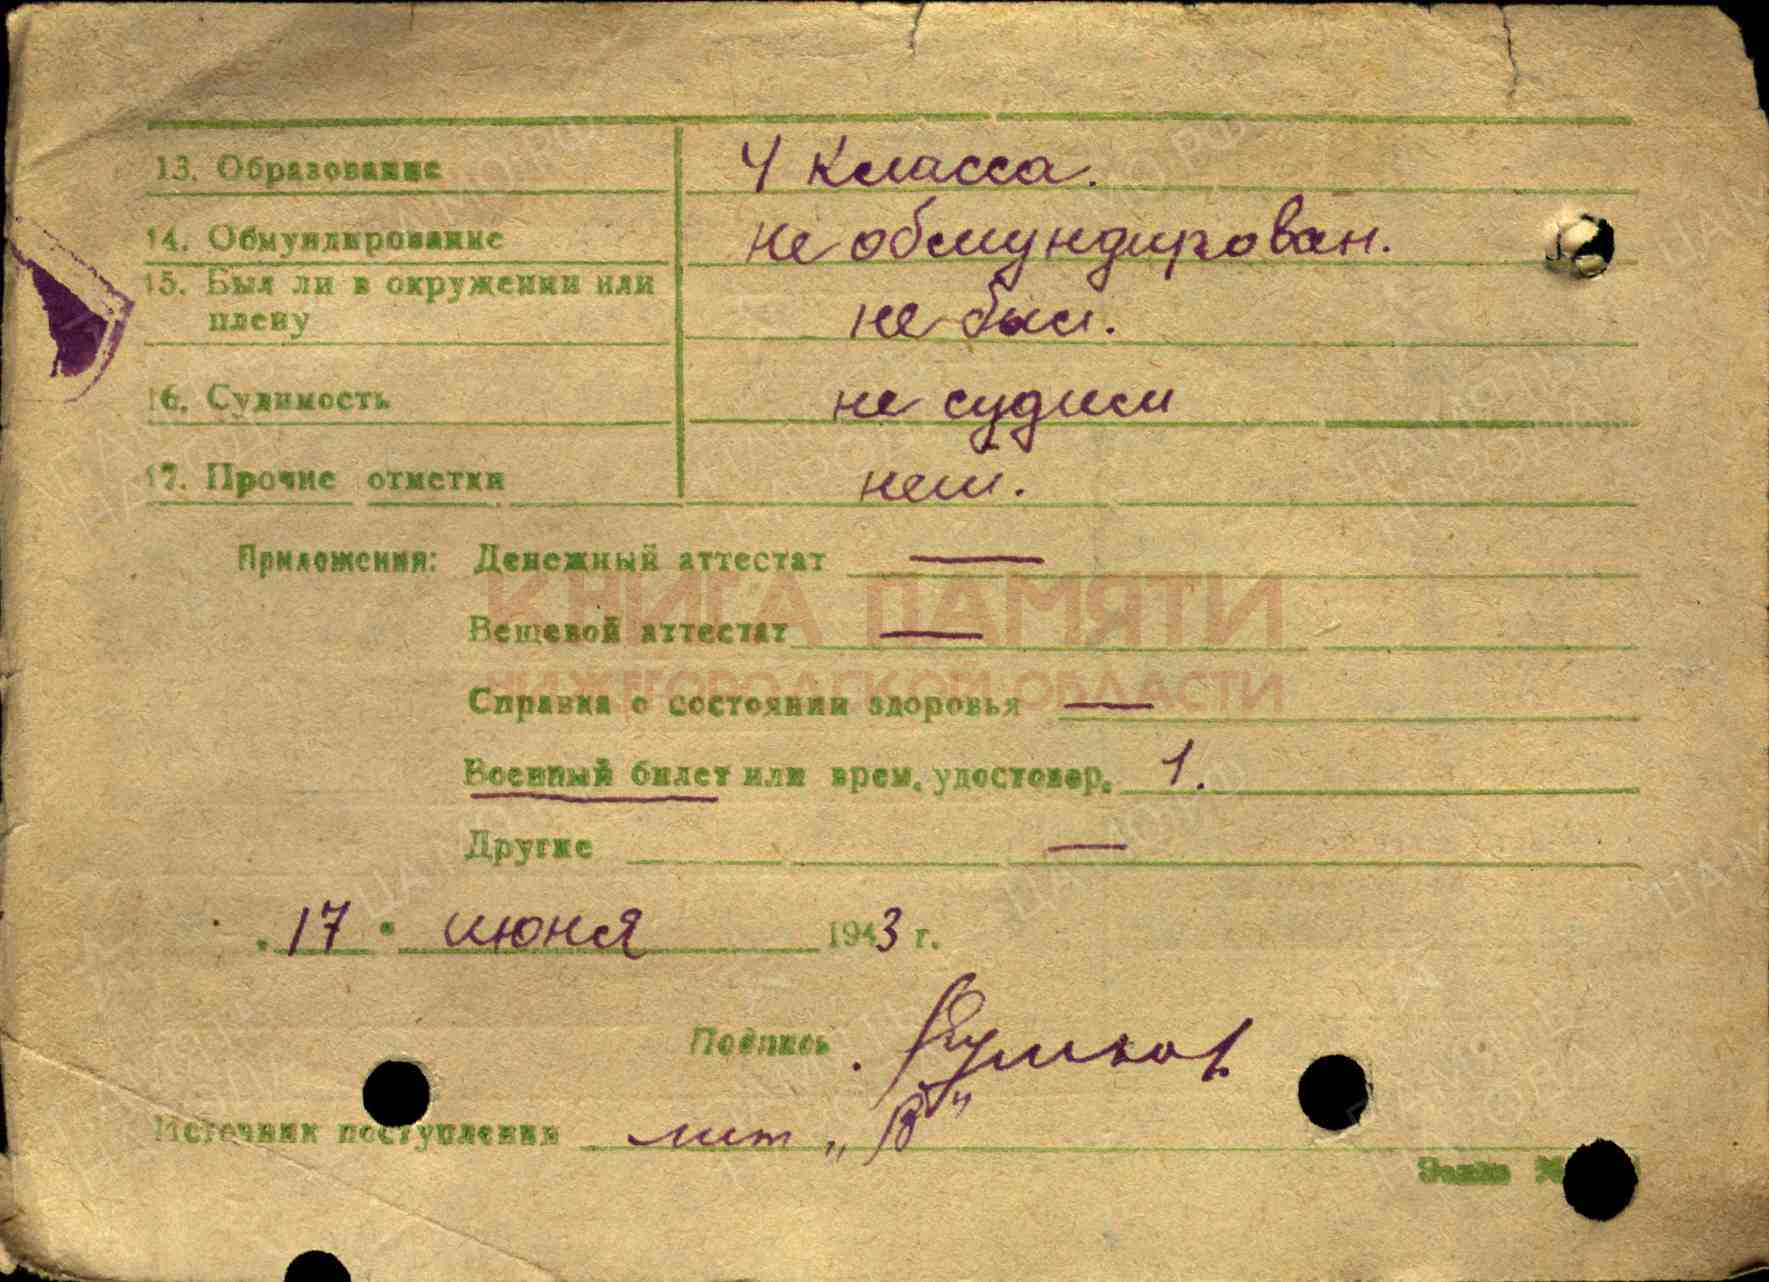 13. Образование 4 класса.
14. Обмундирование не обмундирован.
15. Был ли в окружении или
плену не был.
16. Судимость не судим
17. Прочие отметки нет.
Приложения: Денежный аттестат —
КНИГА ПАМЯТИ
Вещевой аттестат —
НИЖЕГОРОДСКОЙ ОБЛАСТИ
Справка о состоянии здоровья —
Военный билет или врем. удостовер. 1.
Другие —
„17“ июня 1943 г.
Подпись
Источник поступления лит „В“